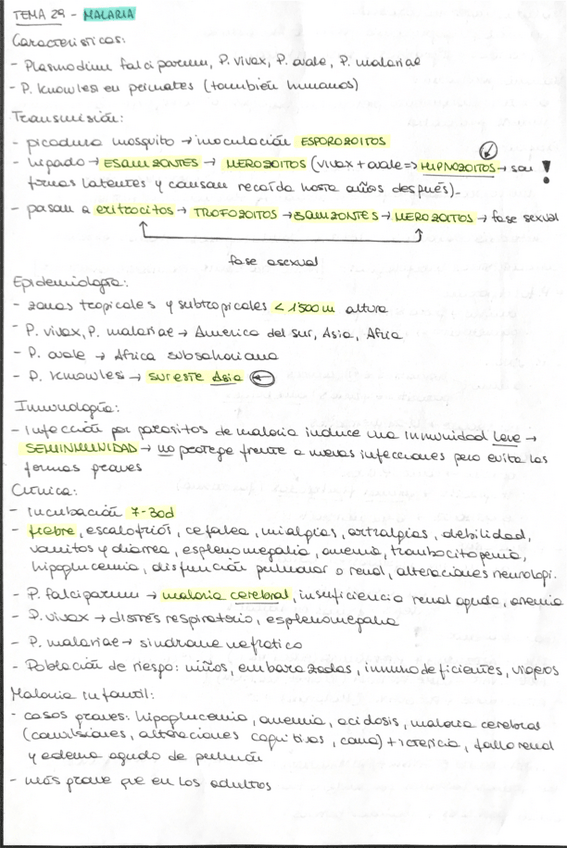 TEMA 29 - MALARIA
Características:
- Plasmodium falciparum, P. vivax, P. ovale, P. malariae
- P. Knowles en primates (también humanos)
Transmisión:
- picadura mosquito → inoculación ESPOROZOITOS
- hígado → ESQUIZONTES → MEROZOITOS (vivax + ovale => HIPNOZOITOS → son !
formas latentes y causan recaída hasta años después)-
- pasan a eritrocitos → TROFOZOITOS → EQUIZONTES → MEROZOITOS → fase sexual
fase asexual
Epidemiología:
- zonas tropicales y subtropicales < 1500 m altura
- P. vivax, P. malariae → America del sur, Asia, Africa
- P. ovale → Africa subsahariana
- P. Knowles → sureste Asia
Inmunología:
- Infección por parásitos de malaria induce una inmunidad leve →
SEMIINMUNIDAD → no protege frente a nuevas infecciones pero evita las
formas graves
Clínica:
- Incubación 7-30d
- fiebre, escalofríos, cefalea, mialgias, artralgias, debilidad,
vómitos y diarrea, esplenomegalia, anemia, trombocitopenia,
hipoglucemia, disfunción pulmonar o renal, alteraciones neurológi.
- P. falciparum → malaria cerebral, insuficiencia renal aguda, anemia
- P. vivax → distrés respiratorio, esplenomegalia
- P. malariae → síndrome nefrótico
- Población de riesgo: niños, embarazadas, inmunodeficientes, viajeros
Malaria infantil:
- casos graves: hipoglucemia, anemia, acidosis, malaria cerebral
(convulsiones, alteraciones cognitivas, coma) + ictericia, fallo renal
y edema agudo de pulmón
- más grave que en los adultos